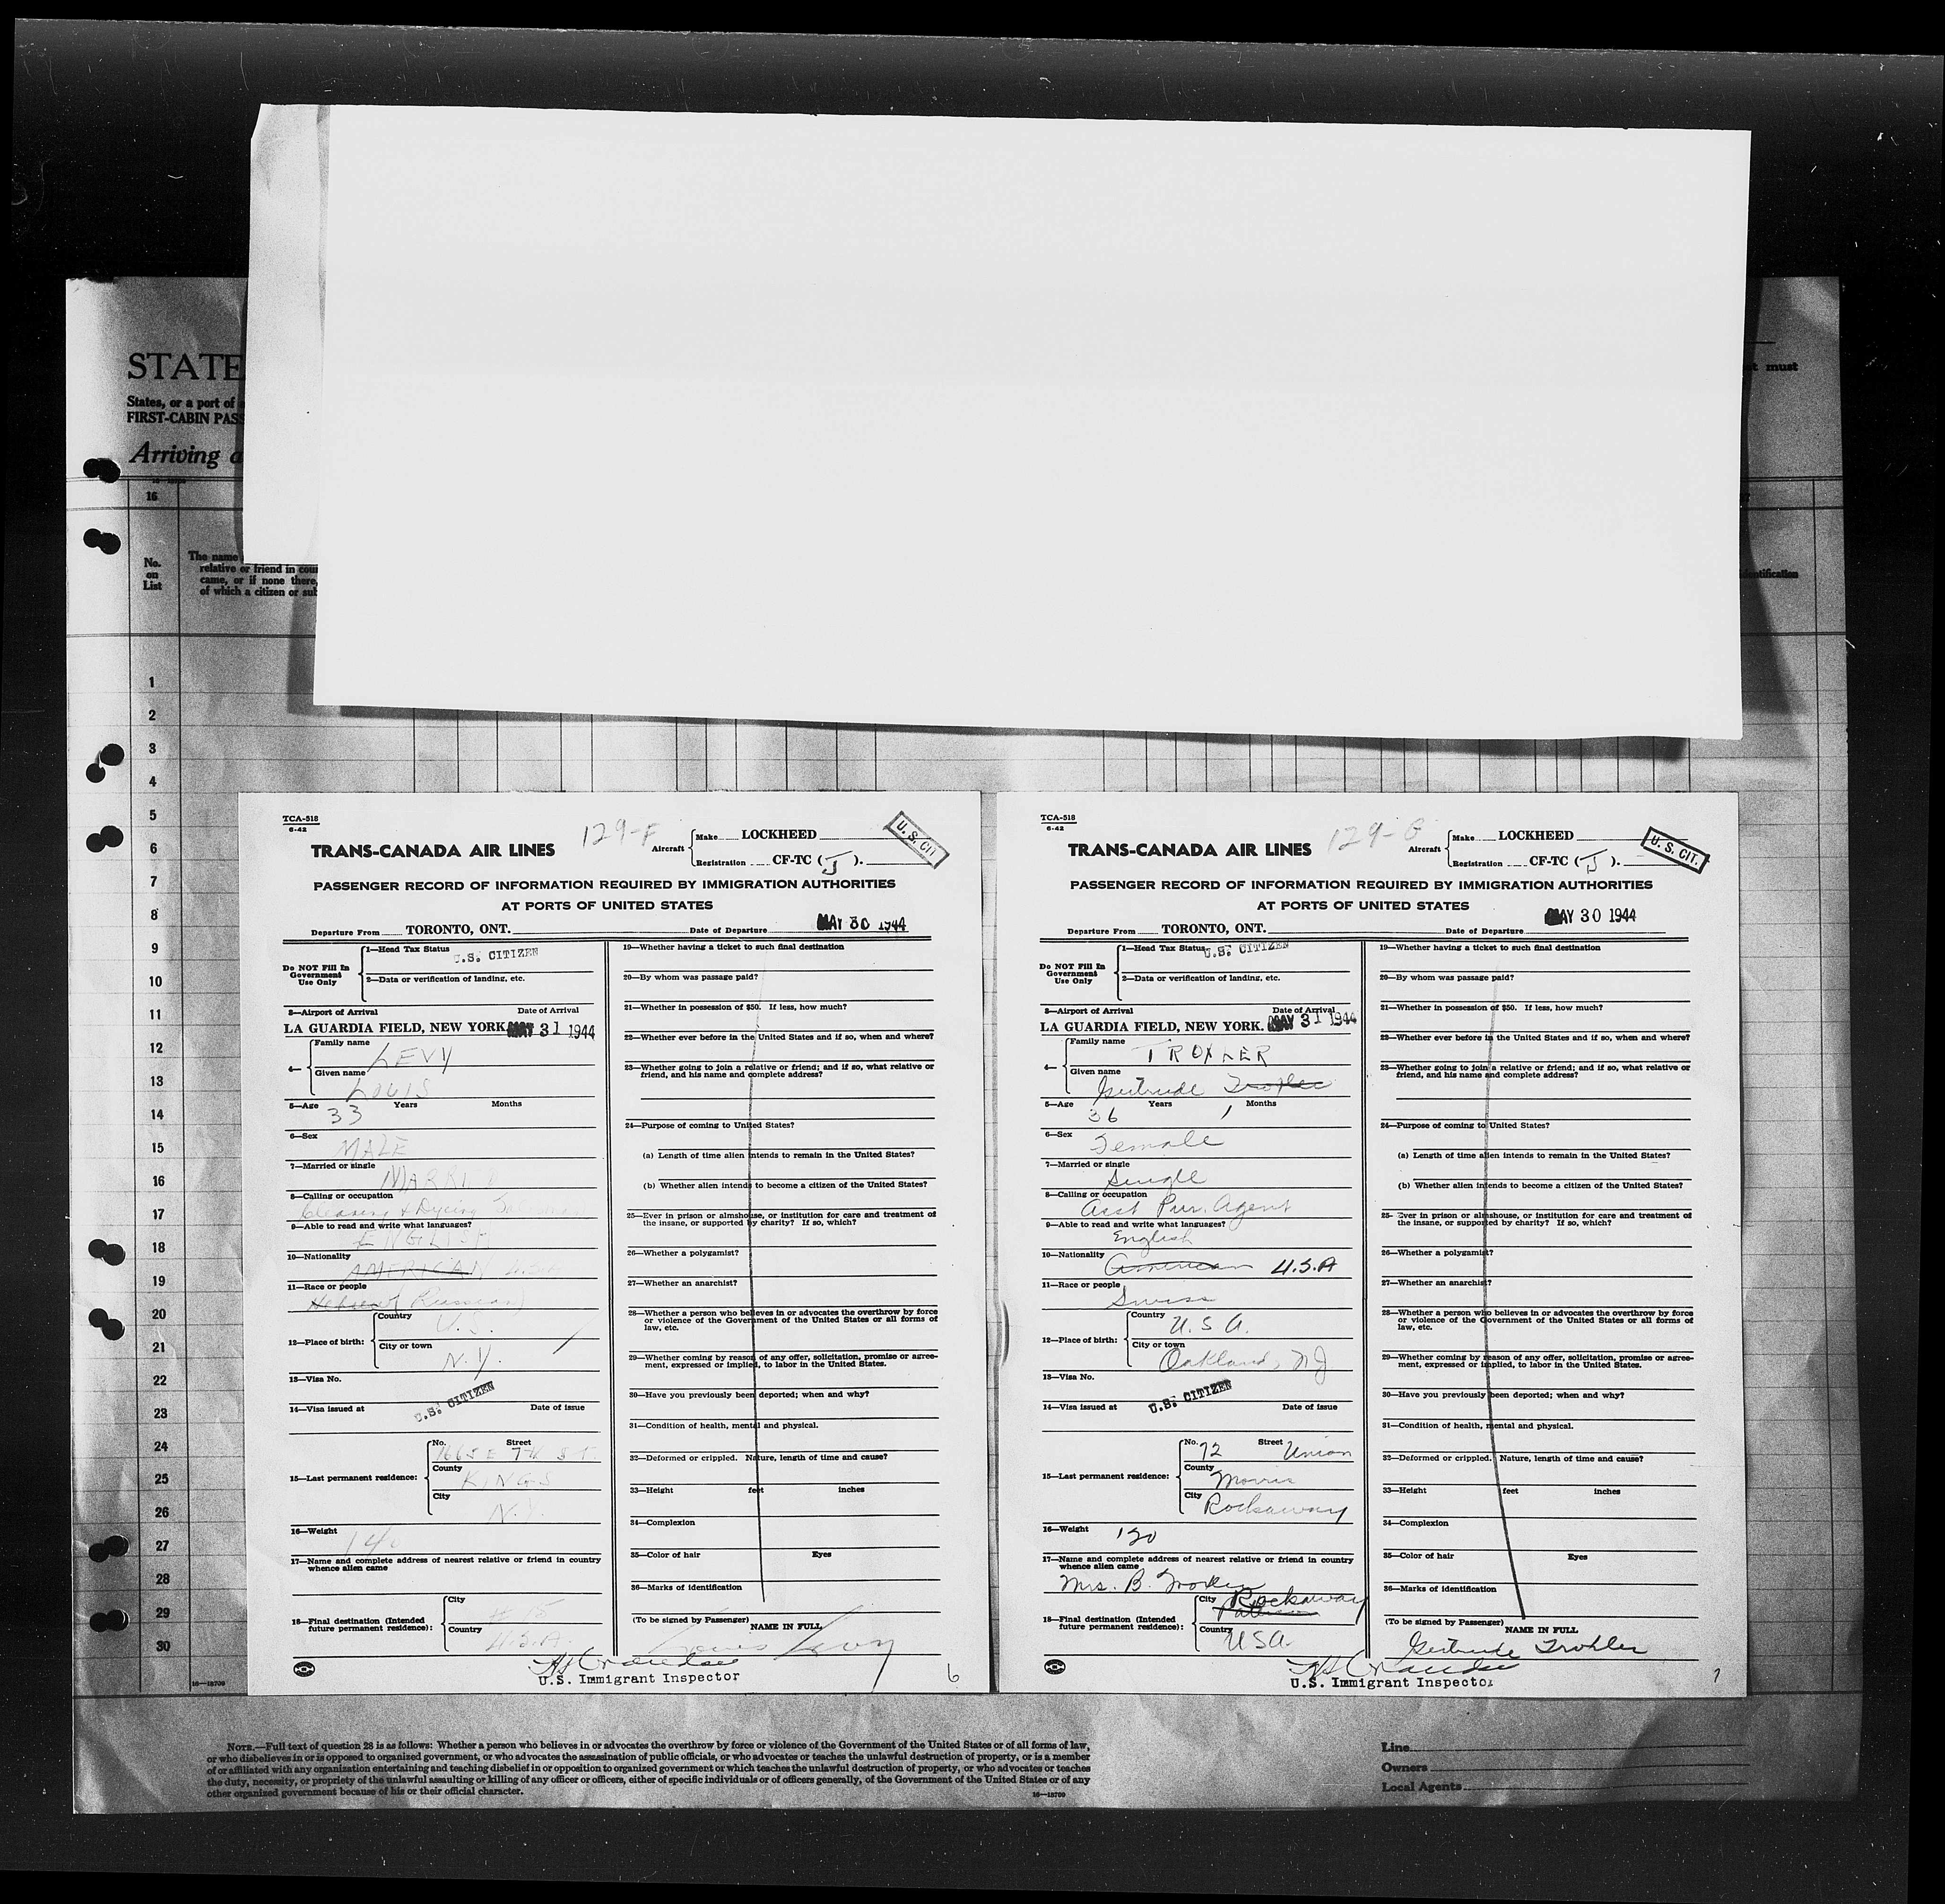 STATE
States, or a port of
FIRST-CABIN PASS
Arriving a
t must
16
No.
on
List
The name
relative or friend in coun
came, or if none there,
of which a citizen or sub
identification
1
2
3
4
5
6
7
8
9
10
11
12
13
14
15
16
17
18
19
20
21
22
23
24
25
26
27
28
29
30
16—18700
TCA-518
6-42
129-F
TRANS-CANADA AIR LINES
Aircraft
Make LOCKHEED
Registration CF-TC (J).
U. S. CIT
PASSENGER RECORD OF INFORMATION REQUIRED BY IMMIGRATION AUTHORITIES
AT PORTS OF UNITED STATES
Departure From TORONTO, ONT. Date of Departure MAY 30 1944
Do NOT Fill In
Government
Use Only
1—Head Tax Status U.S. CITIZEN
2—Data or verification of landing, etc.
3—Airport of Arrival Date of Arrival
LA GUARDIA FIELD, NEW YORK. MAY 31 1944
4—
Family name LEVY
Given name LOUIS
5—Age 33 Years Months
6—Sex MALE
7—Married or single MARRIED
8—Calling or occupation
Cleaning & Dyeing
9—Able to read and write what languages?
ENGLISH
10—Nationality
AMERICAN U.S.A.
11—Race or people
Hebrew (Russian)
12—Place of birth:
Country U.S.
City or town N.Y.
13—Visa No.
U.S. CITIZEN
14—Visa issued at Date of issue
15—Last permanent residence:
No. Street
1665 E 7th ST
County KINGS
City N.Y.
16—Weight 140
17—Name and complete address of nearest relative or friend in country
whence alien came
18—Final destination (Intended
future permanent residence):
City
Country U.S.A.
19—Whether having a ticket to such final destination
20—By whom was passage paid?
21—Whether in possession of $50. If less, how much?
22—Whether ever before in the United States and if so, when and where?
23—Whether going to join a relative or friend; and if so, what relative or
friend, and his name and complete address?
24—Purpose of coming to United States?
(a) Length of time alien intends to remain in the United States?
(b) Whether alien intends to become a citizen of the United States?
25—Ever in prison or almshouse, or institution for care and treatment of
the insane, or supported by charity? If so, which?
26—Whether a polygamist?
27—Whether an anarchist?
28—Whether a person who believes in or advocates the overthrow by force
or violence of the Government of the United States or all forms of
law, etc.
29—Whether coming by reason of any offer, solicitation, promise or agree-
ment, expressed or implied, to labor in the United States.
30—Have you previously been deported; when and why?
31—Condition of health, mental and physical.
32—Deformed or crippled. Nature, length of time and cause?
33—Height feet inches
34—Complexion
35—Color of hair Eyes
36—Marks of identification
(To be signed by Passenger) NAME IN FULL
Louis Levy
U.S. Immigrant Inspector
6
TCA-518
6-42
129-G
TRANS-CANADA AIR LINES
Aircraft
Make LOCKHEED
Registration CF-TC (J).
U. S. CIT.
PASSENGER RECORD OF INFORMATION REQUIRED BY IMMIGRATION AUTHORITIES
AT PORTS OF UNITED STATES
Departure From TORONTO, ONT. Date of Departure MAY 30 1944
Do NOT Fill In
Government
Use Only
1—Head Tax Status U.S. CITIZEN
2—Data or verification of landing, etc.
3—Airport of Arrival Date of Arrival
LA GUARDIA FIELD, NEW YORK. MAY 31 1944
4—
Family name TROXLER
Given name Gertrude Troxler
5—Age 36 Years 1 Months
6—Sex Female
7—Married or single Single
8—Calling or occupation
Asst Pur. Agent
9—Able to read and write what languages?
English
10—Nationality
American U.S.A
11—Race or people
Swiss
12—Place of birth:
Country U.S.A.
City or town Oakland, NJ
13—Visa No.
U.S. CITIZEN
14—Visa issued at Date of issue
15—Last permanent residence:
No. 72 Street Union
County Morris
City Rockaway
16—Weight 120
17—Name and complete address of nearest relative or friend in country
whence alien came
Mrs. B. Troxler
18—Final destination (Intended
future permanent residence):
City Rockaway
Country USA.
19—Whether having a ticket to such final destination
20—By whom was passage paid?
21—Whether in possession of $50. If less, how much?
22—Whether ever before in the United States and if so, when and where?
23—Whether going to join a relative or friend; and if so, what relative or
friend, and his name and complete address?
24—Purpose of coming to United States?
(a) Length of time alien intends to remain in the United States?
(b) Whether alien intends to become a citizen of the United States?
25—Ever in prison or almshouse, or institution for care and treatment of
the insane, or supported by charity? If so, which?
26—Whether a polygamist?
27—Whether an anarchist?
28—Whether a person who believes in or advocates the overthrow by force
or violence of the Government of the United States or all forms of
law, etc.
29—Whether coming by reason of any offer, solicitation, promise or agree-
ment, expressed or implied, to labor in the United States.
30—Have you previously been deported; when and why?
31—Condition of health, mental and physical.
32—Deformed or crippled. Nature, length of time and cause?
33—Height feet inches
34—Complexion
35—Color of hair Eyes
36—Marks of identification
(To be signed by Passenger) NAME IN FULL
Gertrude Troxler
U.S. Immigrant Inspector
7
NOTE.—Full text of question 28 is as follows: Whether a person who believes in or advocates the overthrow by force or violence of the Government of the United States or of all forms of law,
or who disbelieves in or is opposed to organized government, or who advocates the assassination of public officials, or who advocates or teaches the unlawful destruction of property, or is a member
of or affiliated with any organization entertaining and teaching disbelief in or opposition to organized government or which teaches the unlawful destruction of property, or who advocates or teaches
the duty, necessity, or propriety of the unlawful assaulting or killing of any officer or officers, either of specific individuals or of officers generally, of the Government of the United States or of any
other organized government because of his or their official character.
16—18700
Line
Owners
Local Agents